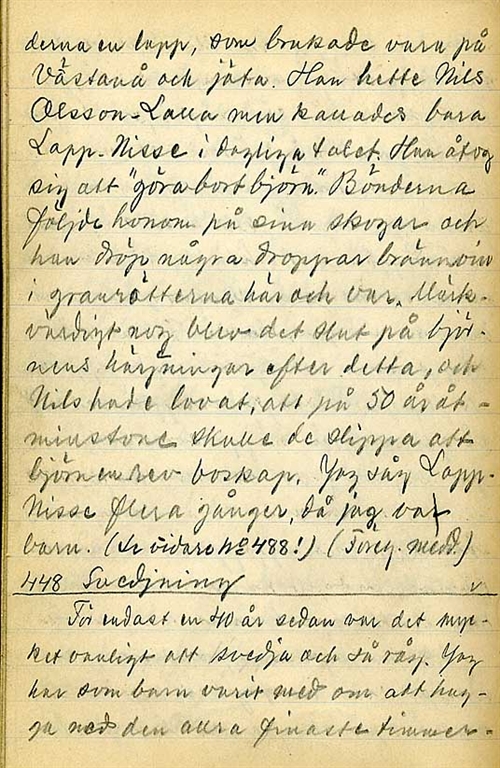 derna en lapp, som brukade vara på
Västanå och jäta. Han hette Nils
Olsson-Lalla men kallades bara
Lapp-Nisse i dagliga talet. Han åtog
sig att "göra bort björn." Bönderna
följde honom på sina skogar och
han dröp några droppar brännvin
i granrötterna här och var. Märk-
värdigt nog blev det slut på björ-
nens härjningar efter detta, och
Nils hade lovat, att på 50 år åt-
minstone skulle de slippa att
björnen rev boskap. Jag såg Lapp-
Nisse flera gånger, då jag var
barn. (Se vidare No 488!) (Föreg. medd.)
448 Svedjning v
För endast en 40 år sedan var det myc-
ket vanligt att svedja och så råg. Jag
har som barn varit med om att hug-
ga ned den allra finaste timmer-